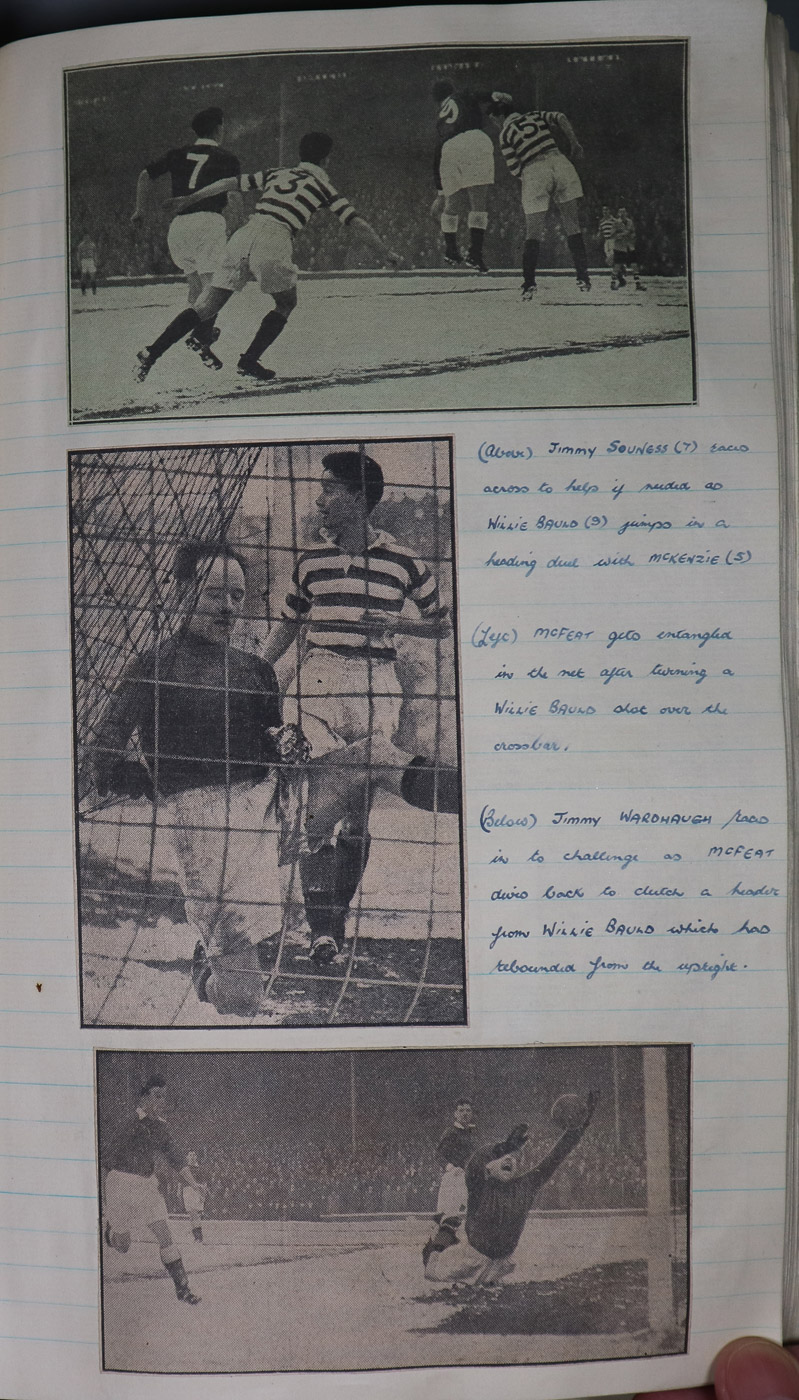 7
3
9
5
(Above) Jimmy SOUNESS (7) races
across to help if needed as
WILLIE BAULD (9) jumps in a
heading duel with MCKENZIE (5)
(Left) MCFEAT gets entangled
in the net after turning a
WILLIE BAULD shot over the
crossbar.
(Below) Jimmy WARDHAUGH races
in to challenge as MCFEAT
dives back to clutch a header
from WILLIE BAULD which has
rebounded from the upright.